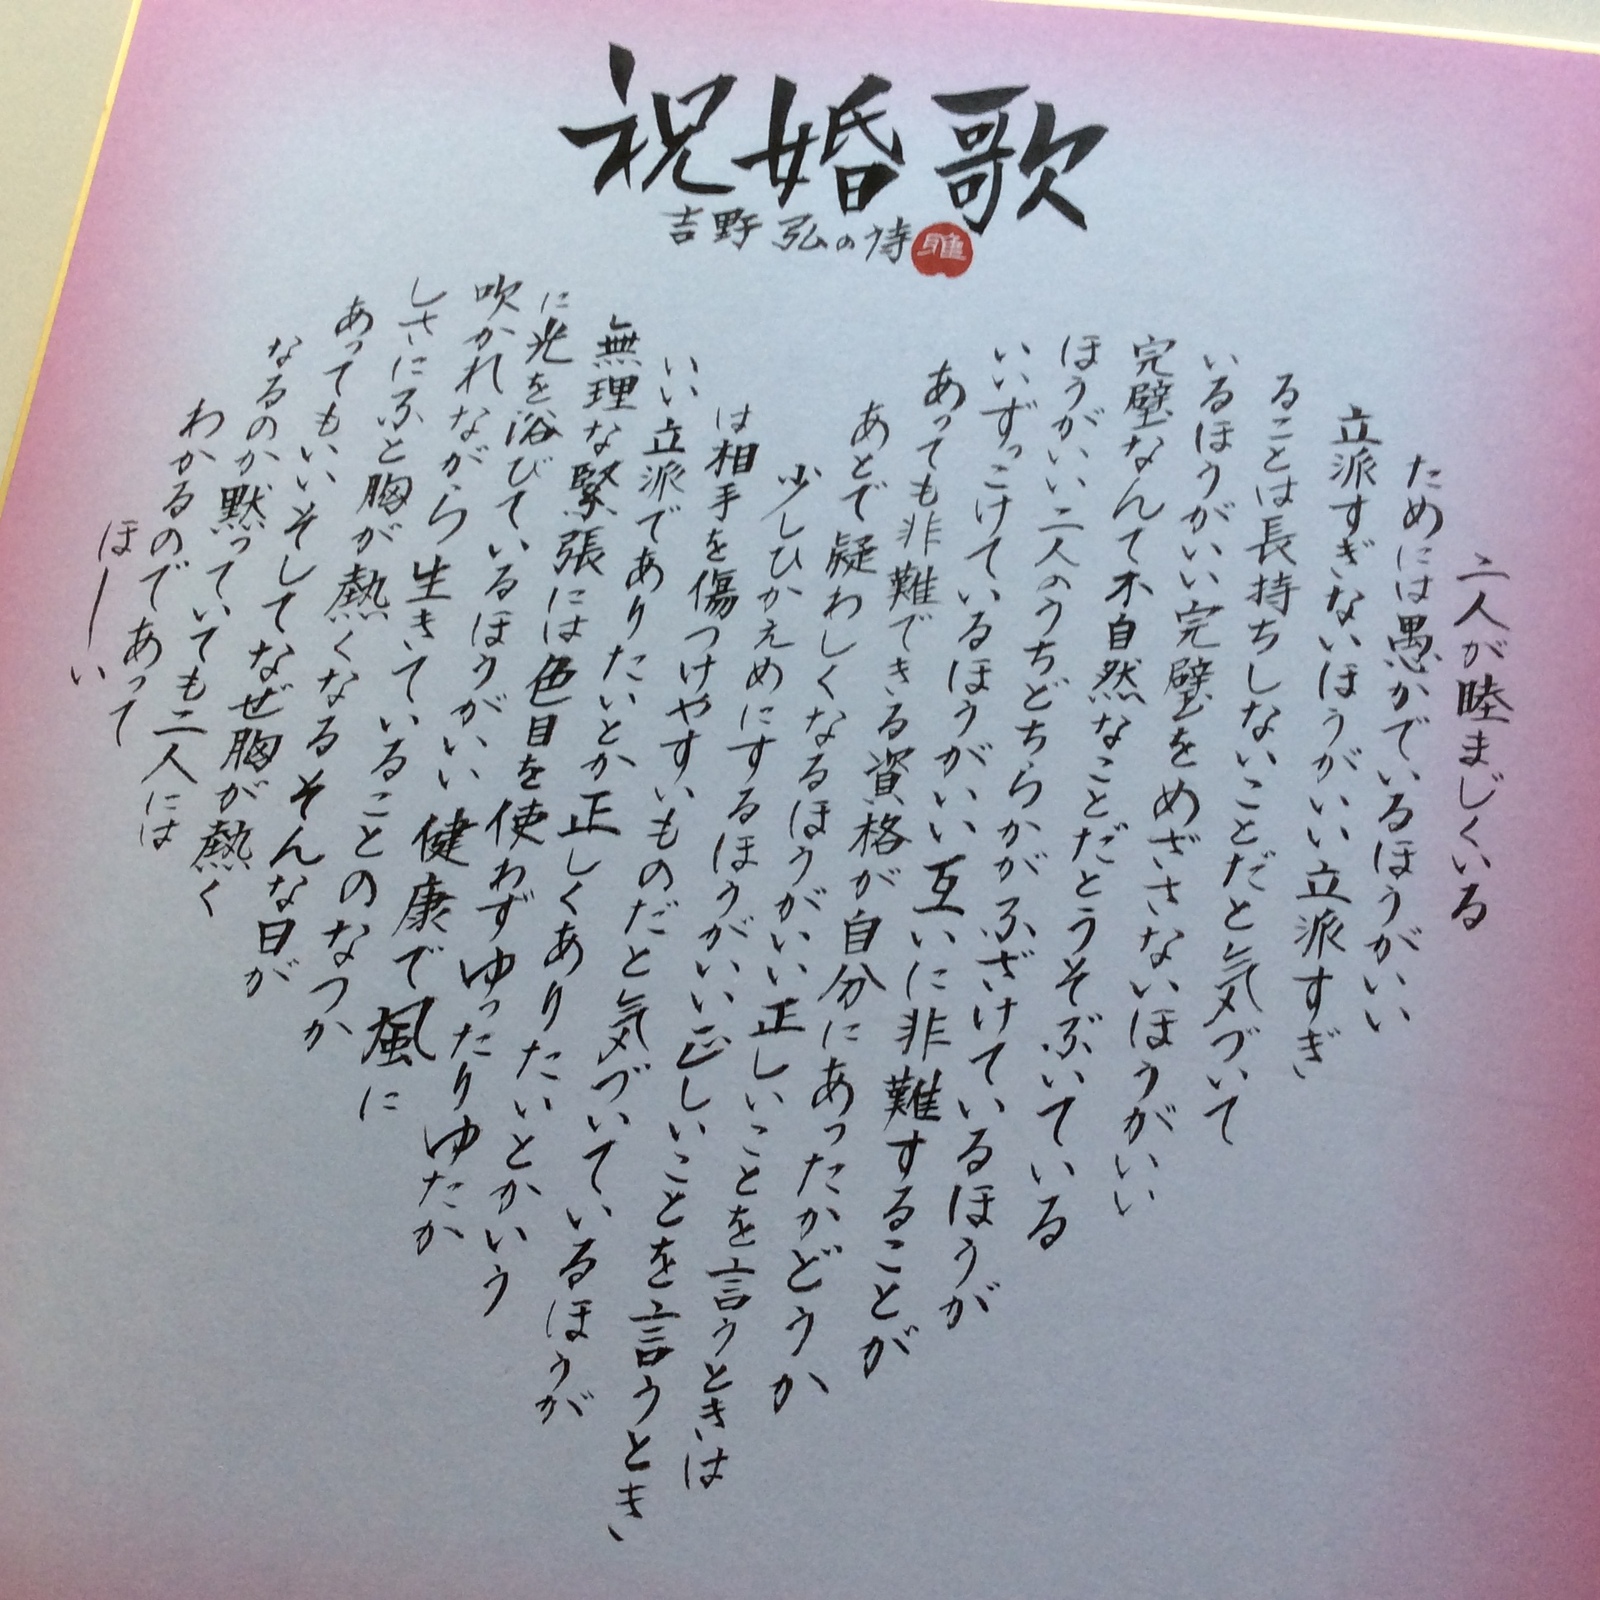 祝婚歌
吉野弘の詩
二人が睦まじくいる
ためには愚かでいるほうがいい
立派すぎないほうがいい立派すぎ
ることは長持ちしないことだと気づいて
いるほうがいい完璧をめざさないほうがいい
完璧なんて不自然なことだとうそぶいている
ほうがいい二人のうちどちらかがふざけているほうが
いいずっこけているほうがいい互いに非難することが
あっても非難できる資格が自分にあったかどうか
あとで疑わしくなるほうがいい正しいことを言うときは
少しひかえめにするほうがいい正しいことを言うとき
は相手を傷つけやすいものだと気づいているほうが
いい立派でありたいとか正しくありたいとかいう
無理な緊張には色目を使わずゆったりゆたか
に光を浴びているほうがいい健康で風に
吹かれながら生きていることのなつか
しさにふと胸が熱くなるそんな日が
あってもいいそしてなぜ胸が熱く
なるのか黙っていても二人には
わかるのであって
ほーい